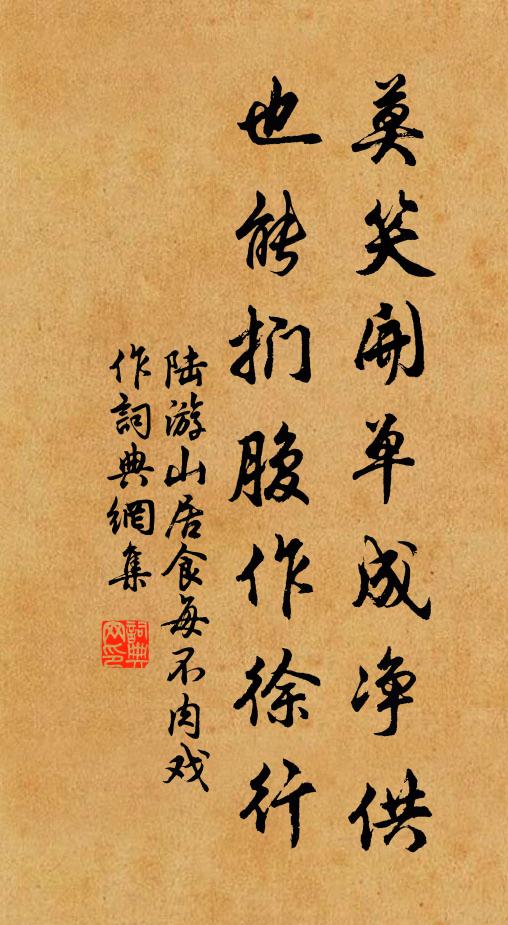 莫笑開单成净供
也能捫腹作徐行
陆游山居食每不肉戏
作詞典網集
詞典
网印